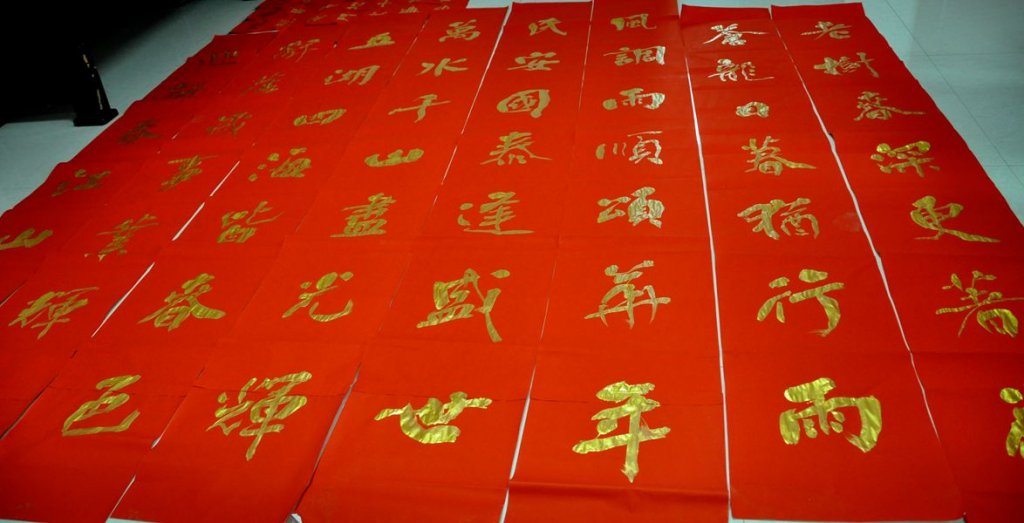 老樹春深更著
蒼龍日暮猶行雨
風調雨順頌華年
民安國泰逢盛世
萬水千山盡光輝
五湖四海皆春色
事業輝
春江山